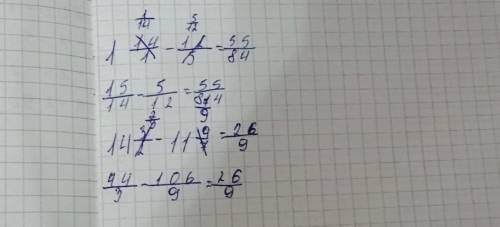 1 1/14 - 5/12 = 55/84
15/14 - 5/12 = 55/84
14 2/3 - 11 7/9 = 26/9
44/3 - 106/9 = 26/9